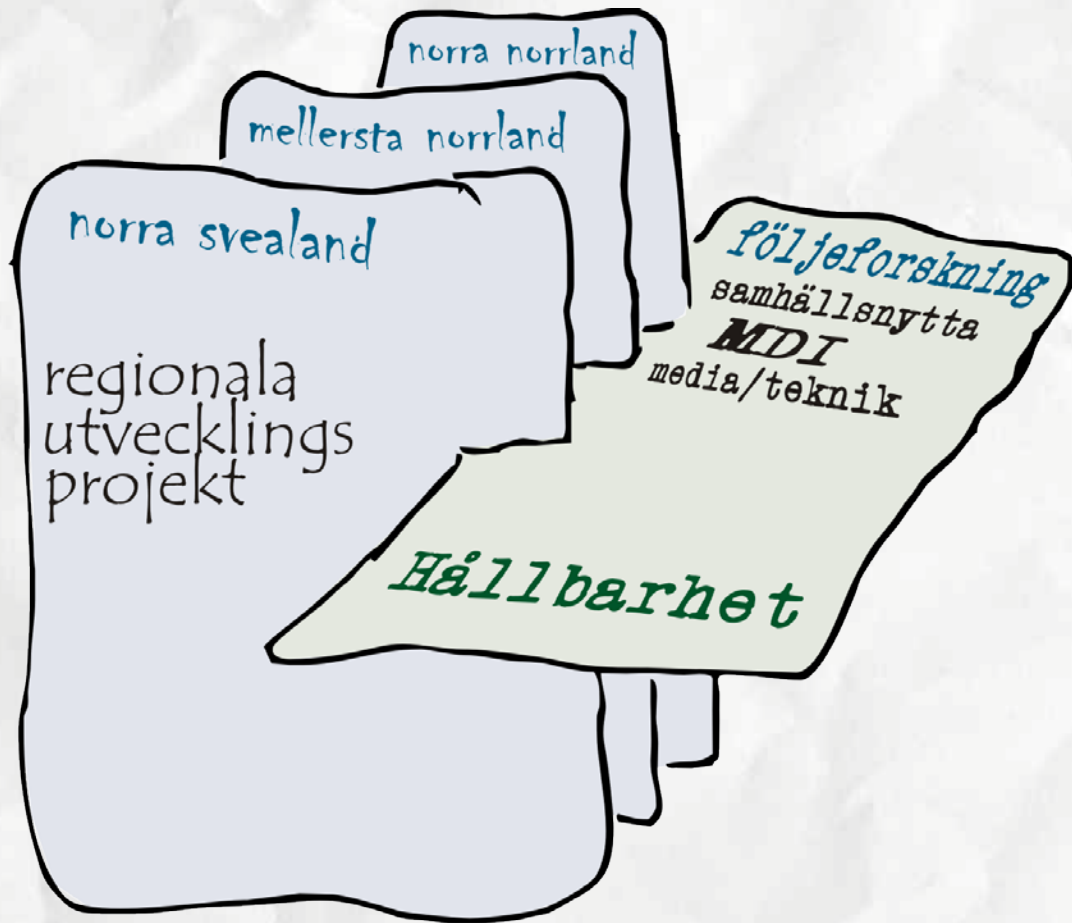 norra norrland
mellersta norrland
norra svealand
regionala
utvecklings
projekt
följeforskning
samhällsnytta
MDI
media/teknik
Hållbarhet